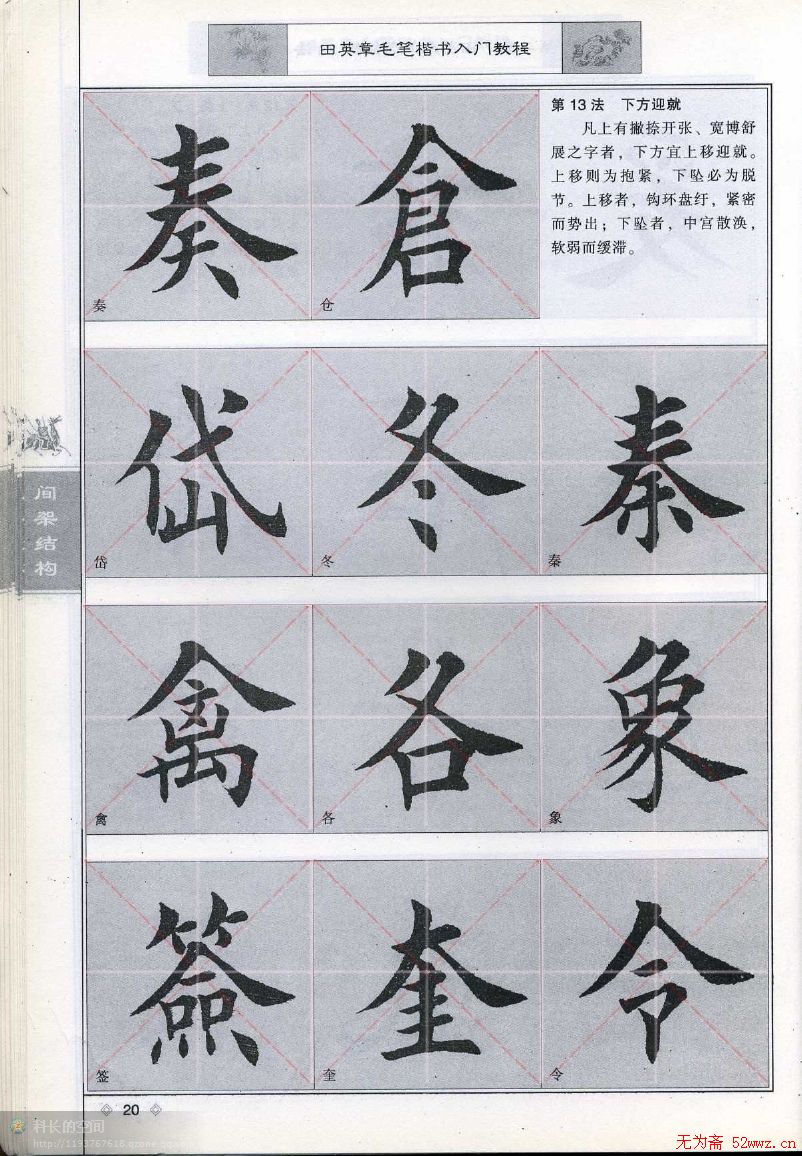 田英章毛笔楷书入门教程
第13法 下方迎就
凡上有撇捺开张、宽博舒
展之字者，下方宜上移迎就。
上移则为抱紧，下坠必为脱
节。上移者，钩环盘纡，紧密
而势出；下坠者，中宫散涣，
软弱而缓滞。
奏 倉
奏 仓
岱 冬 秦
岱 冬 秦
间架结构
禽 各 象
禽 各 象
簽 奎 令
签 奎 令
20
科长的空间
http://1193767618.qzone.qq
无为斋 52wwz.cn